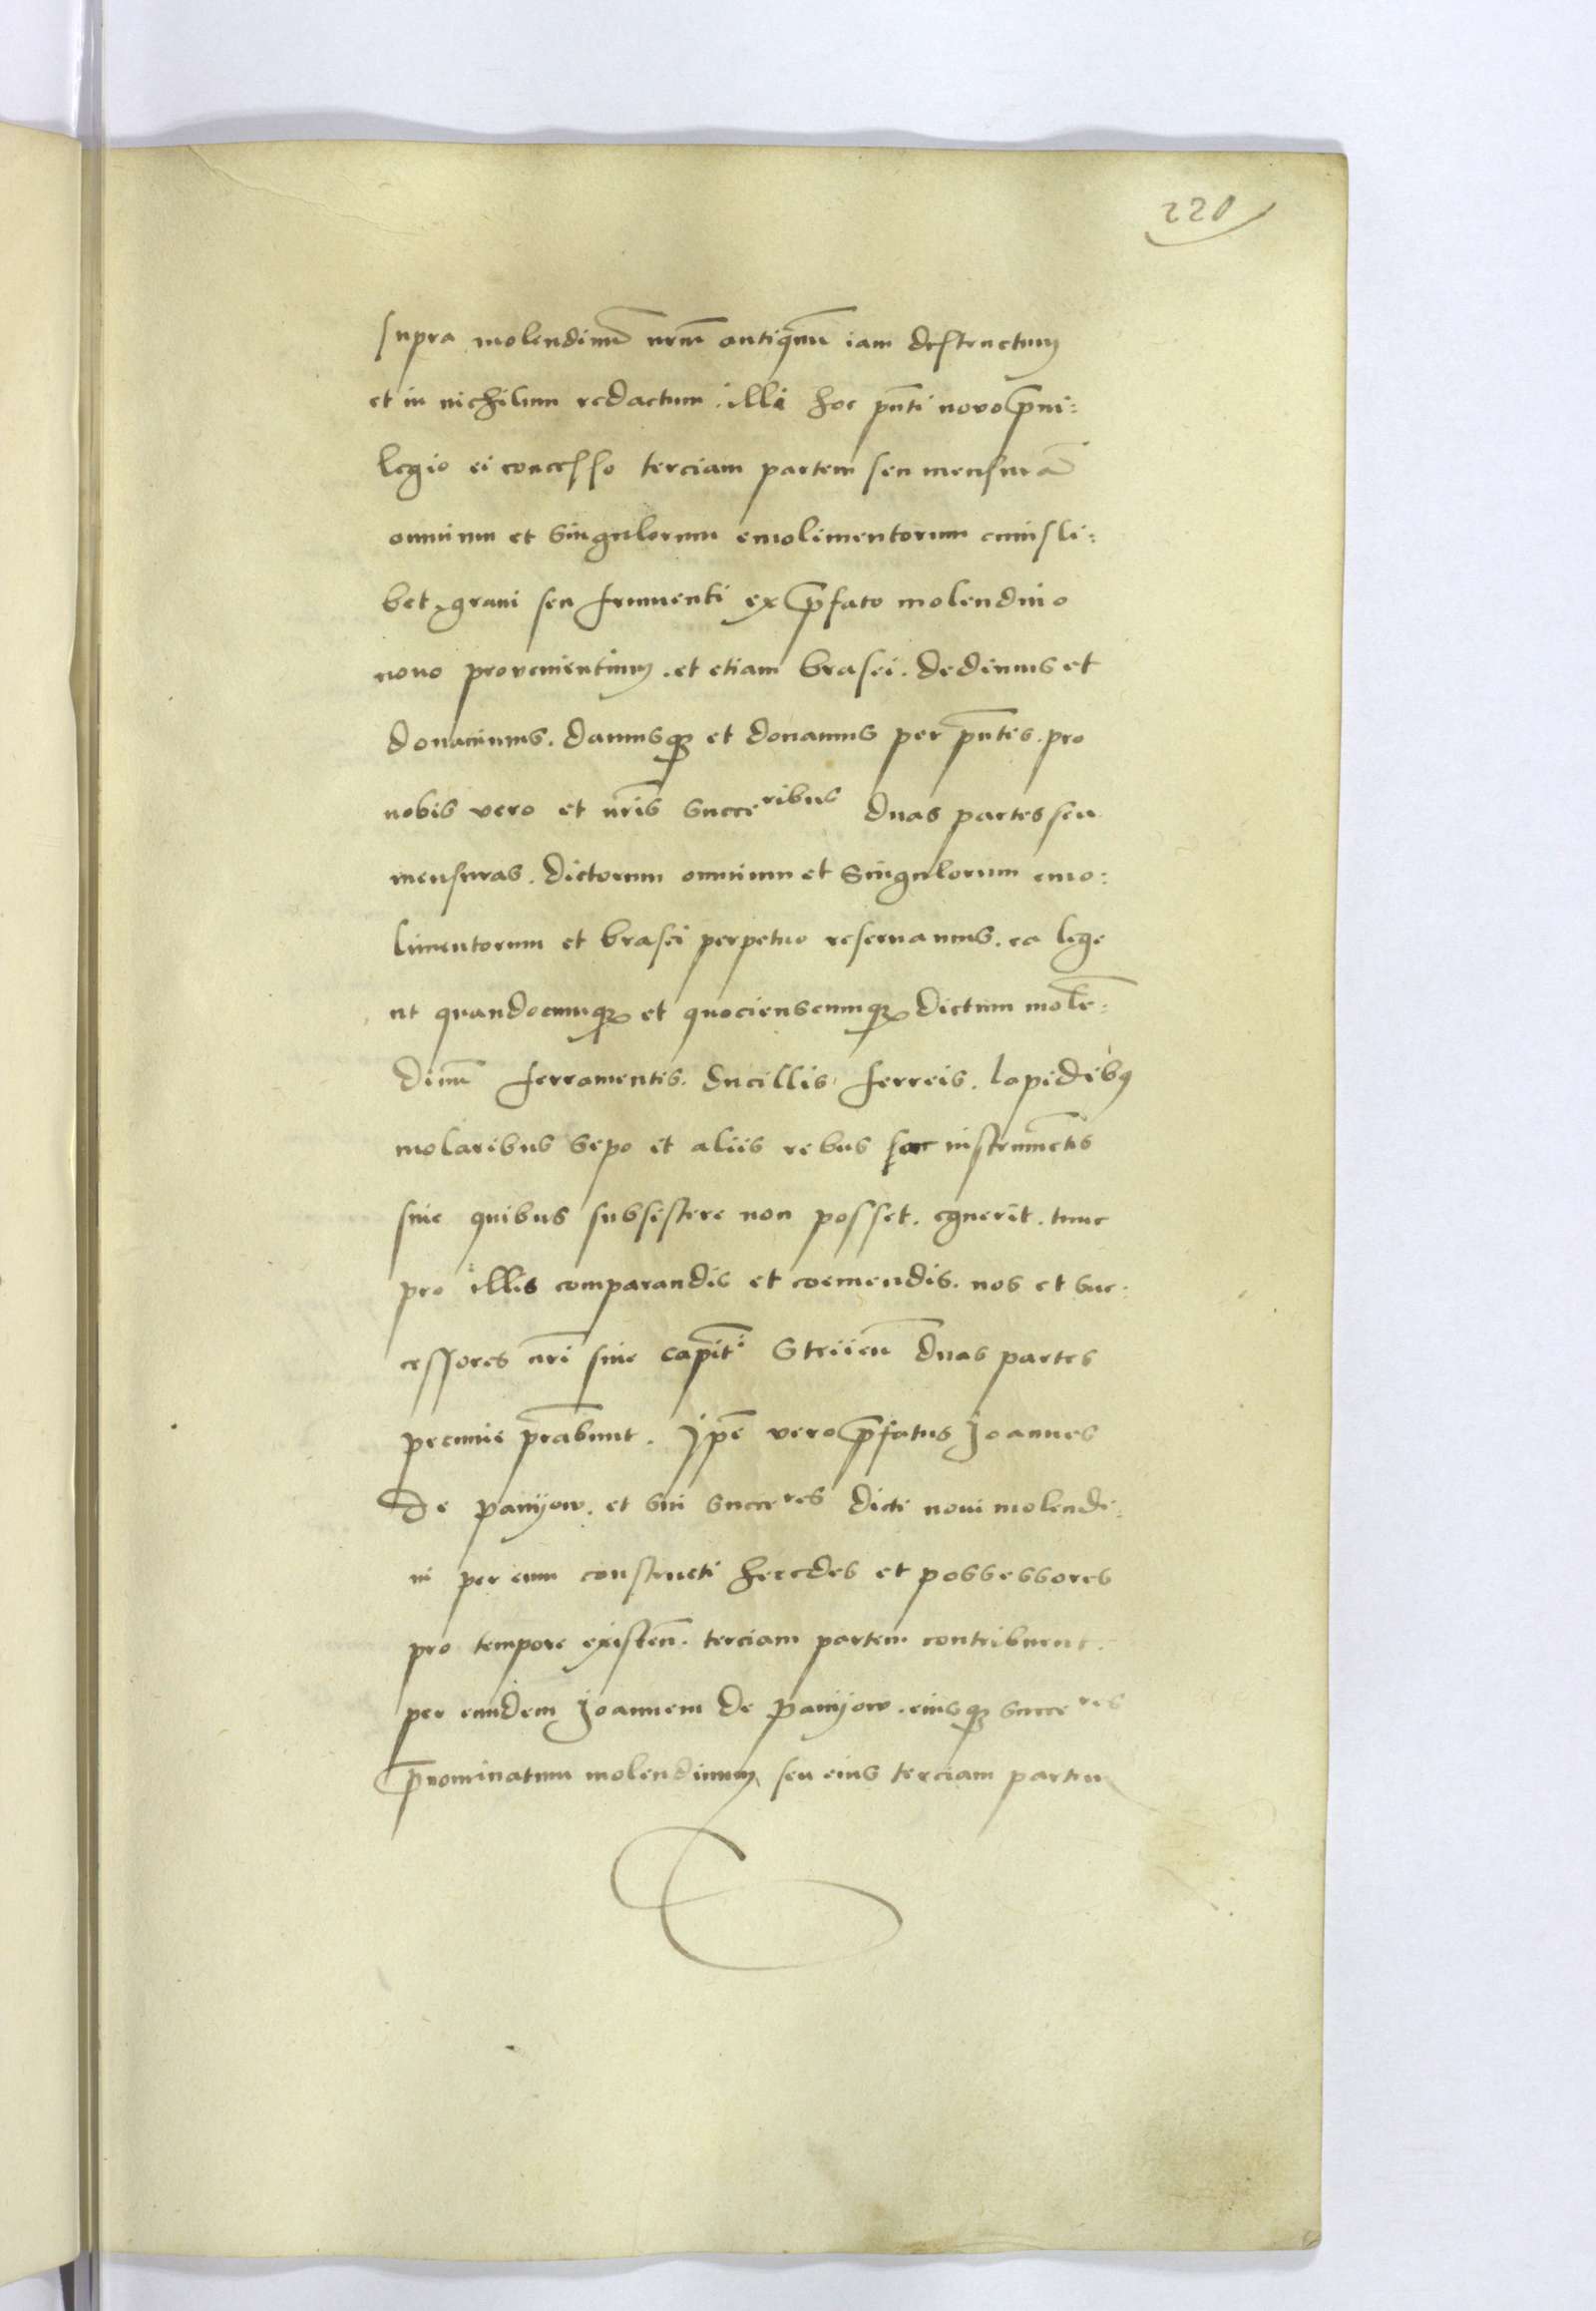 220
supra molendinū nrm̄ antiquū iam destructum
et in nichilum redactum. illi hoc pn̄ti novo p̄ui:
legio ei concesso terciam partem seu mensurā
omnium et singulorum emolimentorum cuiusli:
bet grani seu frumenti ex p̄fato molendino
nouo provenientium. et etiam brasei. dedimus et
donauimus. damusq3 et donamus per pn̄tes. pro
nobis vero et nr̄is succeribus duas partes seu
mensuras. dictorum omnium et singulorum emo:
limentorum et brasei perpetuo reseruamus. ea lege
ut quandocumq3 et quocienscumq3 dictum molē:
dinū ferramentis. ducillis ferreis. lapidib9
molaribus sepo et aliis rebus hac instrumētis
siue quibus subsistere non posset. eguerit. tunc
pro illis comparandis et coemendis. nos et suc:
cessores nr̄i siue capit̄i Striien̄ duas partes
pecunie pr̄abunt. Jpē vero p̄fatus Joannes
de Panijow. et sui succeres dicti noui molendi:
ni per eum constructi heredes et possessores
pro tempore existen̄. terciam partem contribuent.
per eundem Joannem de Panijow. eiusq3 succeres
p̄nominatum molendinum seu eius terciam partem